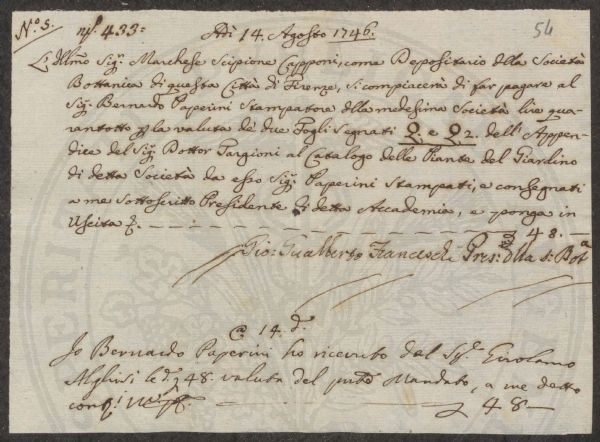 N.o 5. n.o 433= Adì 14. Agosto 1746. 54
L'Illmo Sig.r Marchese Scipione Capponi, come Depositario della Società
Bottanica di questa Città di Firenze, si compiacerà di far pagare al
Sig.r Bernardo Paperini Stampatore della medesima Società lire qua-
rantotto p la valuta de due Fogli Segnati Q. e Q 2. dell'Appen-
dice del Sig.r Dottor Targioni al Catalogo delle Piante del Giardino
di detta Società da esso Sig.r Paperini Stampati, e consegnati
a me sottoscritto Presidente di detta Accademia, e ponga in
Uscita £. 48. —
Gio: Gualberto Franceschi Pres: della S: Bot.a
14. d.o
Io Bernardo Paperini ho ricevuto dal Sig.re Girolamo
le d. £ 48. valuta del pnte Mandato, a me detto
£ 48 —